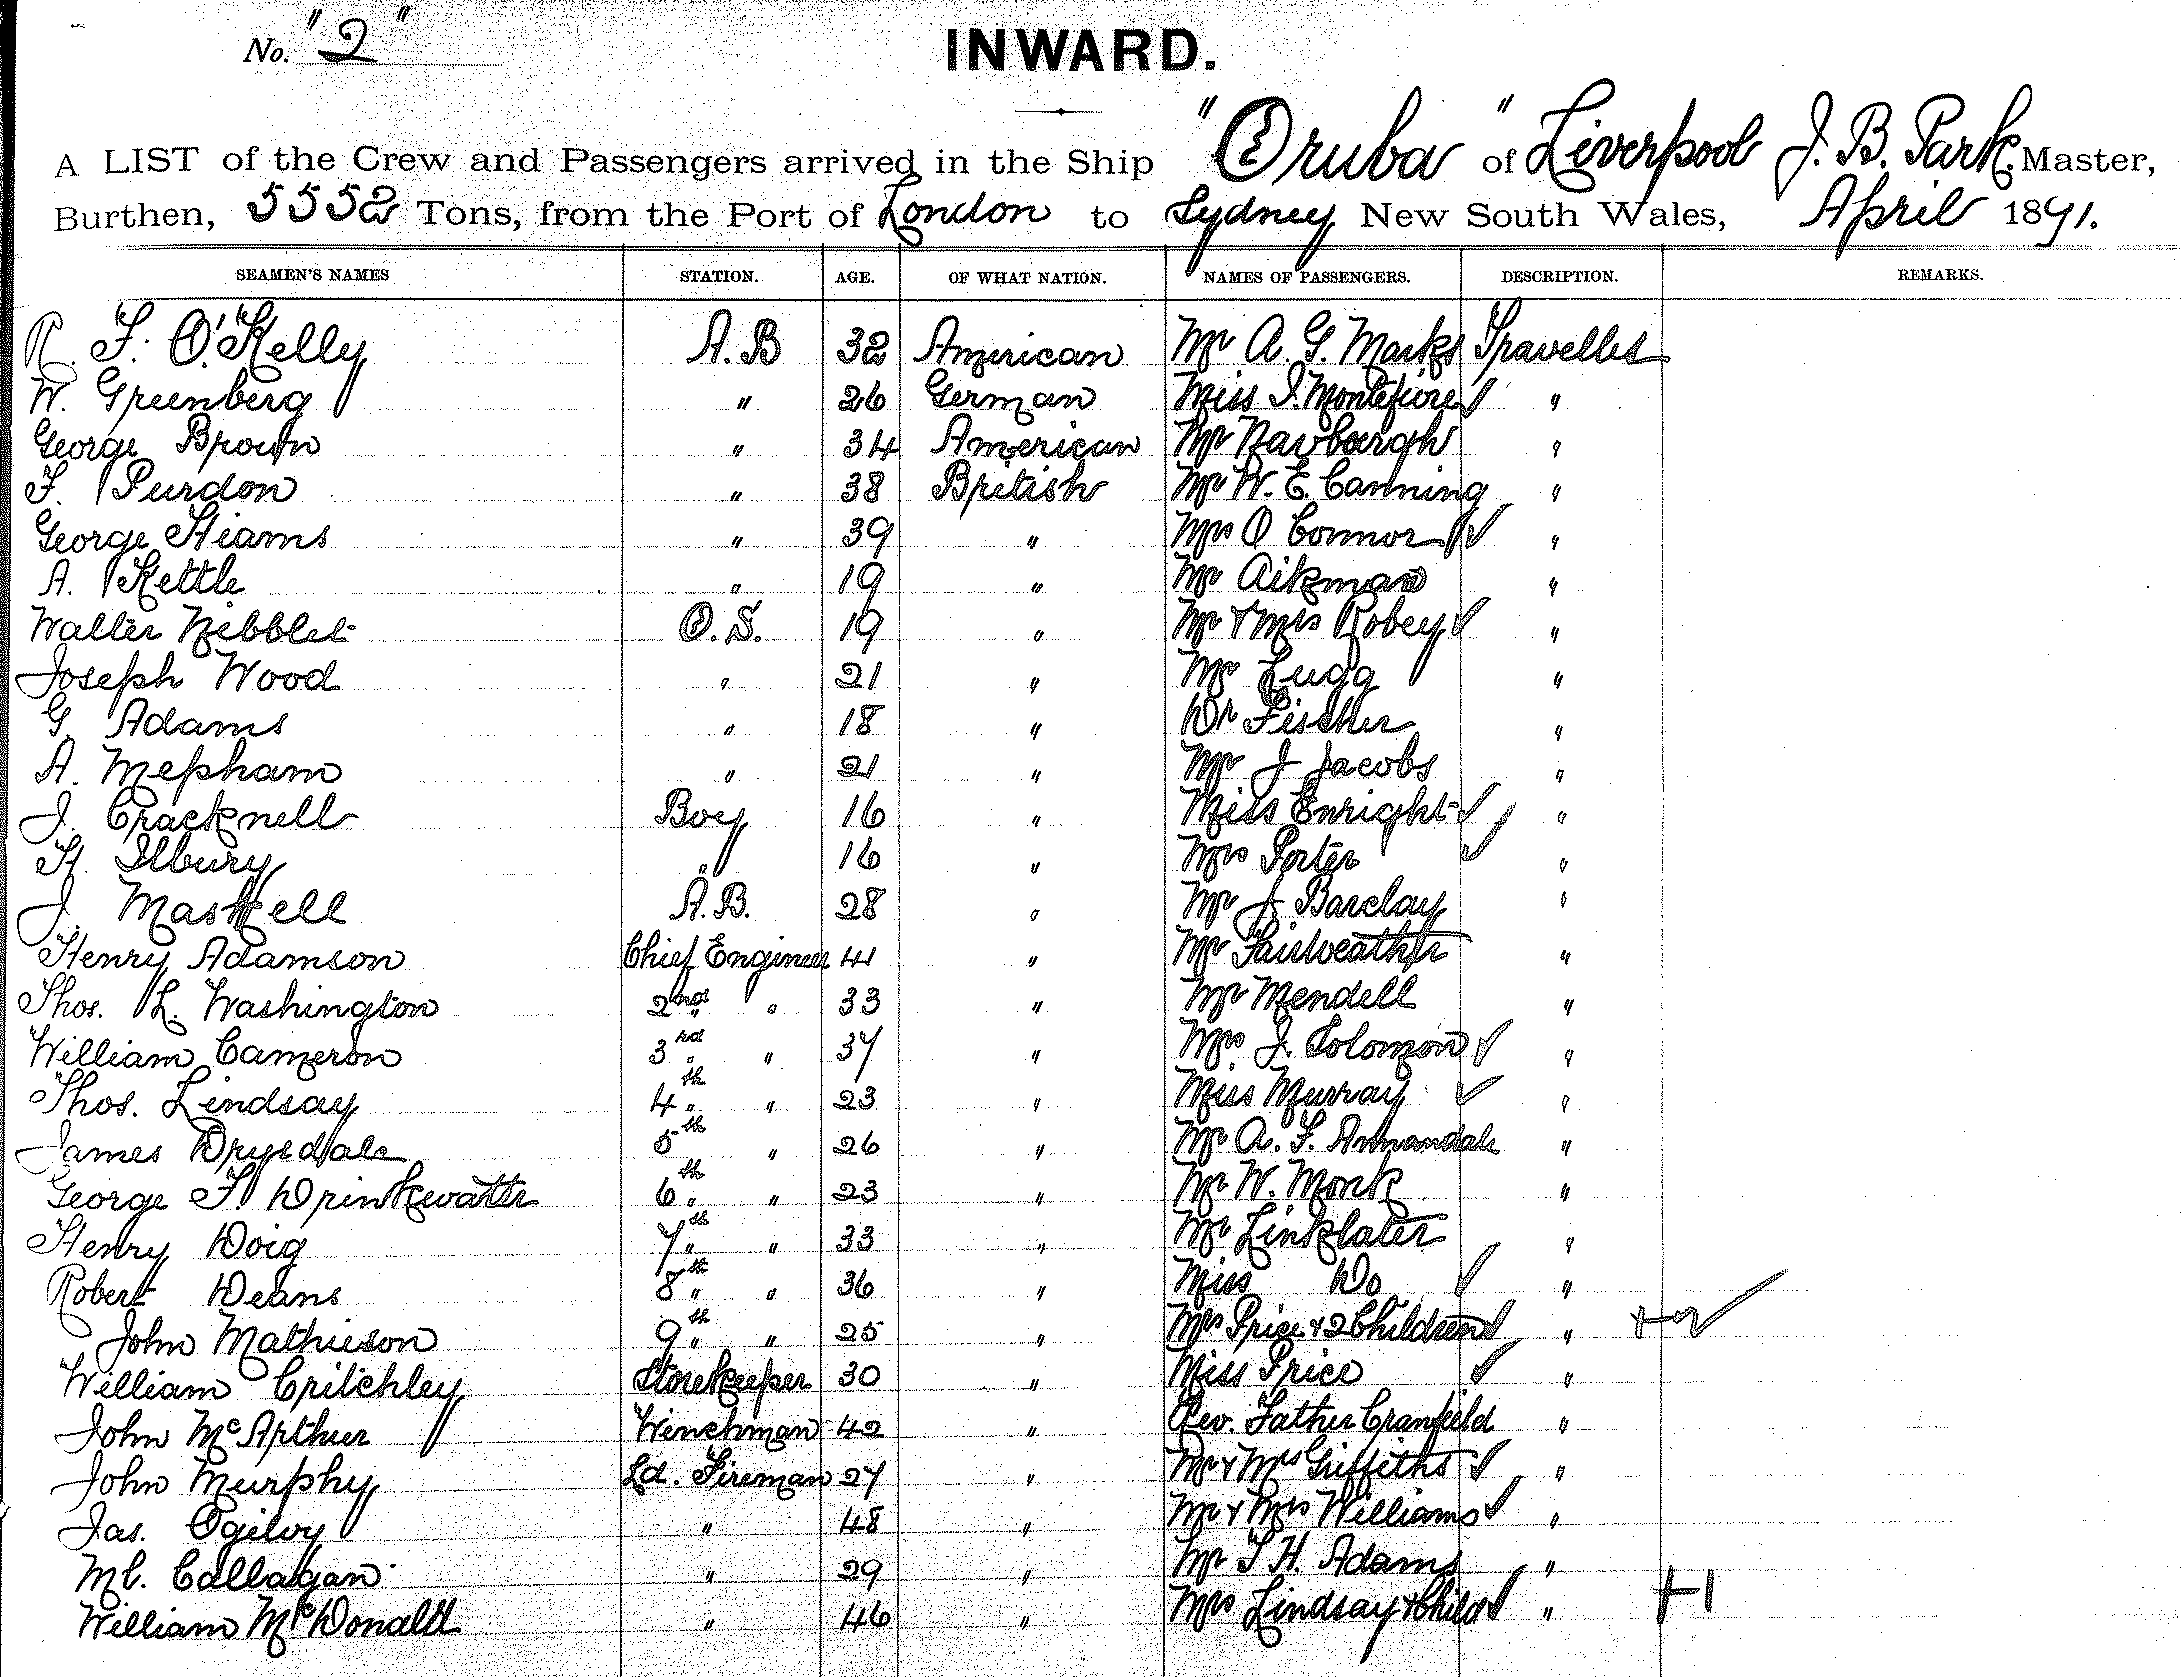 No. "2"
INWARD.
A LIST of the Crew and Passengers arrived in the Ship "Oruba" of Liverpool J. B. Park, Master,
Burthen, 5552 Tons, from the Port of London to Sydney New South Wales, April 1891.
SEAMEN'S NAMES STATION. AGE. OF WHAT NATION. NAMES OF PASSENGERS. DESCRIPTION. REMARKS.
R. F. O'Kelly A.B 32 American Mr A. G. Marks
W. Greenberg " 26 German Miss I. Montefiore "
George Brown " 34 American Mr "
F. Purdon " 38 British Mr W. E. Canning "
George Hiams " 39 " Mrs O Connor "
A. Kettle " 19 " Mr Aikman "
Walter Nibblet O.S. 19 " Mr & Mrs Robey "
Joseph Wood " 21 " Mr Lugg "
G. Adams " 18 " Dr Fischer "
A. Mepham " 21 " Mr J Jacobs "
J. Cracknell Boy 16 " Miss Enright "
H. Ilbury " 16 " Mrs Porter "
J. Maskell A.B. 28 " Mr J. Barclay "
Henry Adamson Chief Engineer 41 " Mr Fairweather "
Thos. L. Washington 2nd " 33 " Mr Mendell "
William Cameron 3rd " 37 " Mrs J. Solomon "
Thos. Lindsay 4th " 23 " Miss Murray "
James Drysdale 5th " 26 " Mr A. F. Annandale "
George F Drinkwater 6th " 23 " Mr W. Monk "
Henry Doig 7th " 33 " Mr Linklater "
Robert Deans 8th " 36 " Miss Do "
John Mathieson 9th " 25 " Mrs Price & 2 Children " +2
William Critchley Storekeeper 30 " Miss Price "
John McArthur Winchman 42 " Rev. Father Cranfield "
John Murphy Ld. Fireman 27 " Mr & Mrs Griffiths "
Jas. Ogilvy " 48 " Mr & Mrs Williams "
Ml. Callagan " 29 " Mr T H. Adams "
William McDonald " 46 " Mrs Lindsay & Child " +1